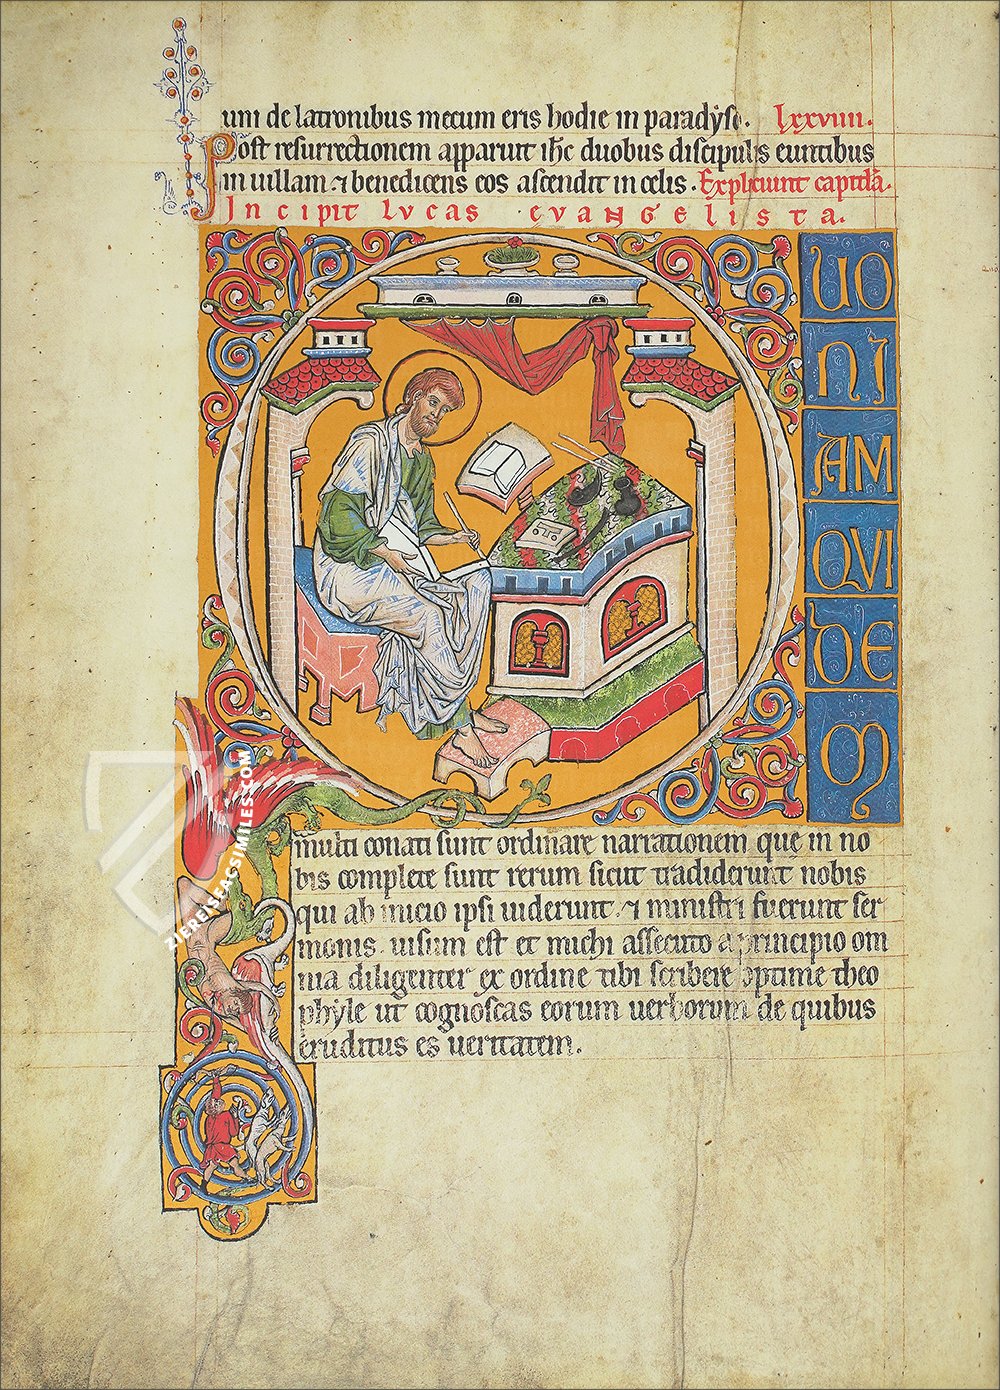 um de latronibus mecum eris hodie in paradyso. lxxviiii.
Post resurrectionem apparuit ihc duobus discipulis euntibus
in uillam ⁊ benedicens eos ascendit in celis. Expliciunt capitula.
Incipit lvcas evangelista.
UO
NI
AM
QVI
DE
M
multi conati sunt ordinare narrationem que in no
bis complete sunt rerum sicut tradiderunt nobis
qui ab inicio ipsi uiderunt. ⁊ ministri fuerunt ser
monis. uisum est et michi assecuto a principio om
nia diligenter ex ordine tibi scribere optime theo
phyle ut cognoscas eorum uerborum de quibus
eruditus es ueritatem.
ZIEREISFACSIMILES.COM